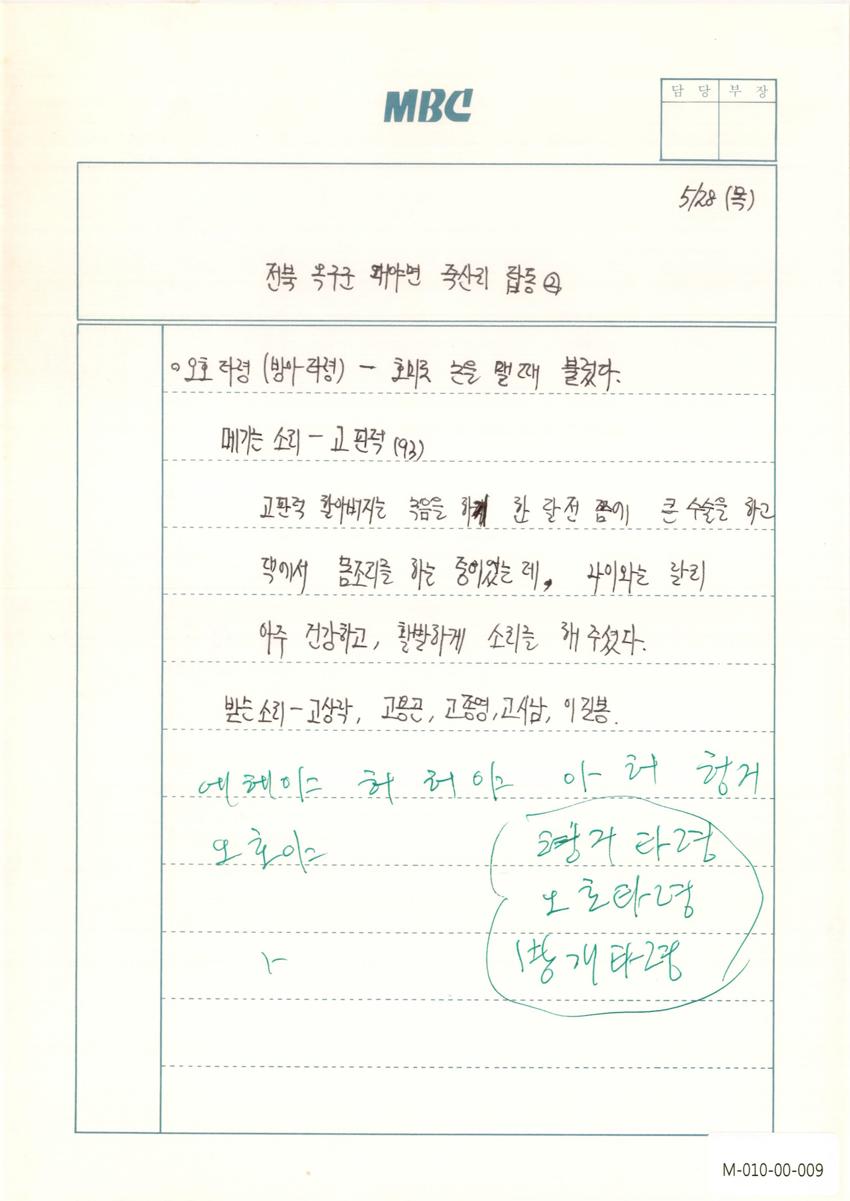 MBC
담 당 부 장
5/28 (목)
전북 옥구군 대야면 죽산리 탑동②
○ 오호 타령 (방아타령) - 호미로 논을 맬 때 불렀다.
메기는 소리 - 고판덕 (93)
고판덕 할아버지는 녹음을 하기 한 달 전 쯤에 큰 수술을 하고
댁에서 몸조리를 하는 중이었는데, 나이와는 달리
아주 건강하고, 활발하게 소리를 해 주셨다.
받는소리 - 고상락, 고용곤, 고종영, 고시남, 이길봉.
에헤이느 허 허이느 아 허 헝거
오호이느
헝거타령
오호타령
방개타령
M-010-00-009